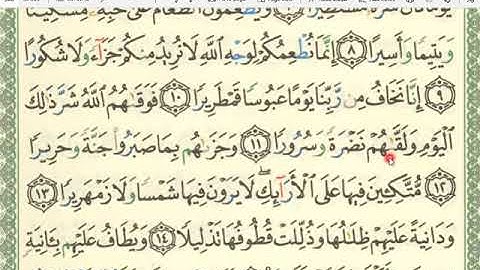 وَيُطْعِمُونَ الطَّعَامَ عَلَىٰ حُبِّهِ مِسْكِينًا
وَيَتِيمًا وَأَسِيرًا ٨ إِنَّمَا نُطْعِمُكُمْ لِوَجْهِ اللَّهِ لَا نُرِيدُ مِنكُمْ جَزَآءً وَلَا شُكُورًا
٩ إِنَّا نَخَافُ مِن رَّبِّنَا يَوْمًا عَبُوسًا قَمْطَرِيرًا ١٠ فَوَقَىٰهُمُ اللَّهُ شَرَّ ذَٰلِكَ
الْيَوْمِ وَلَقَّىٰهُمْ نَضْرَةً وَسُرُورًا ١١ وَجَزَىٰهُم بِمَا صَبَرُوا۟ جَنَّةً وَحَرِيرًا
١٢ مُّتَّكِـِٔينَ فِيهَا عَلَى الْأَرَآئِكِ ۖ لَا يَرَوْنَ فِيهَا شَمْسًا وَلَا زَمْهَرِيرًا ١٣
وَدَانِيَةً عَلَيْهِمْ ظِلَٰلُهَا وَذُلِّلَتْ قُطُوفُهَا تَذْلِيلًا ١٤ وَيُطَافُ عَلَيْهِم بِـَٔانِيَةٍ